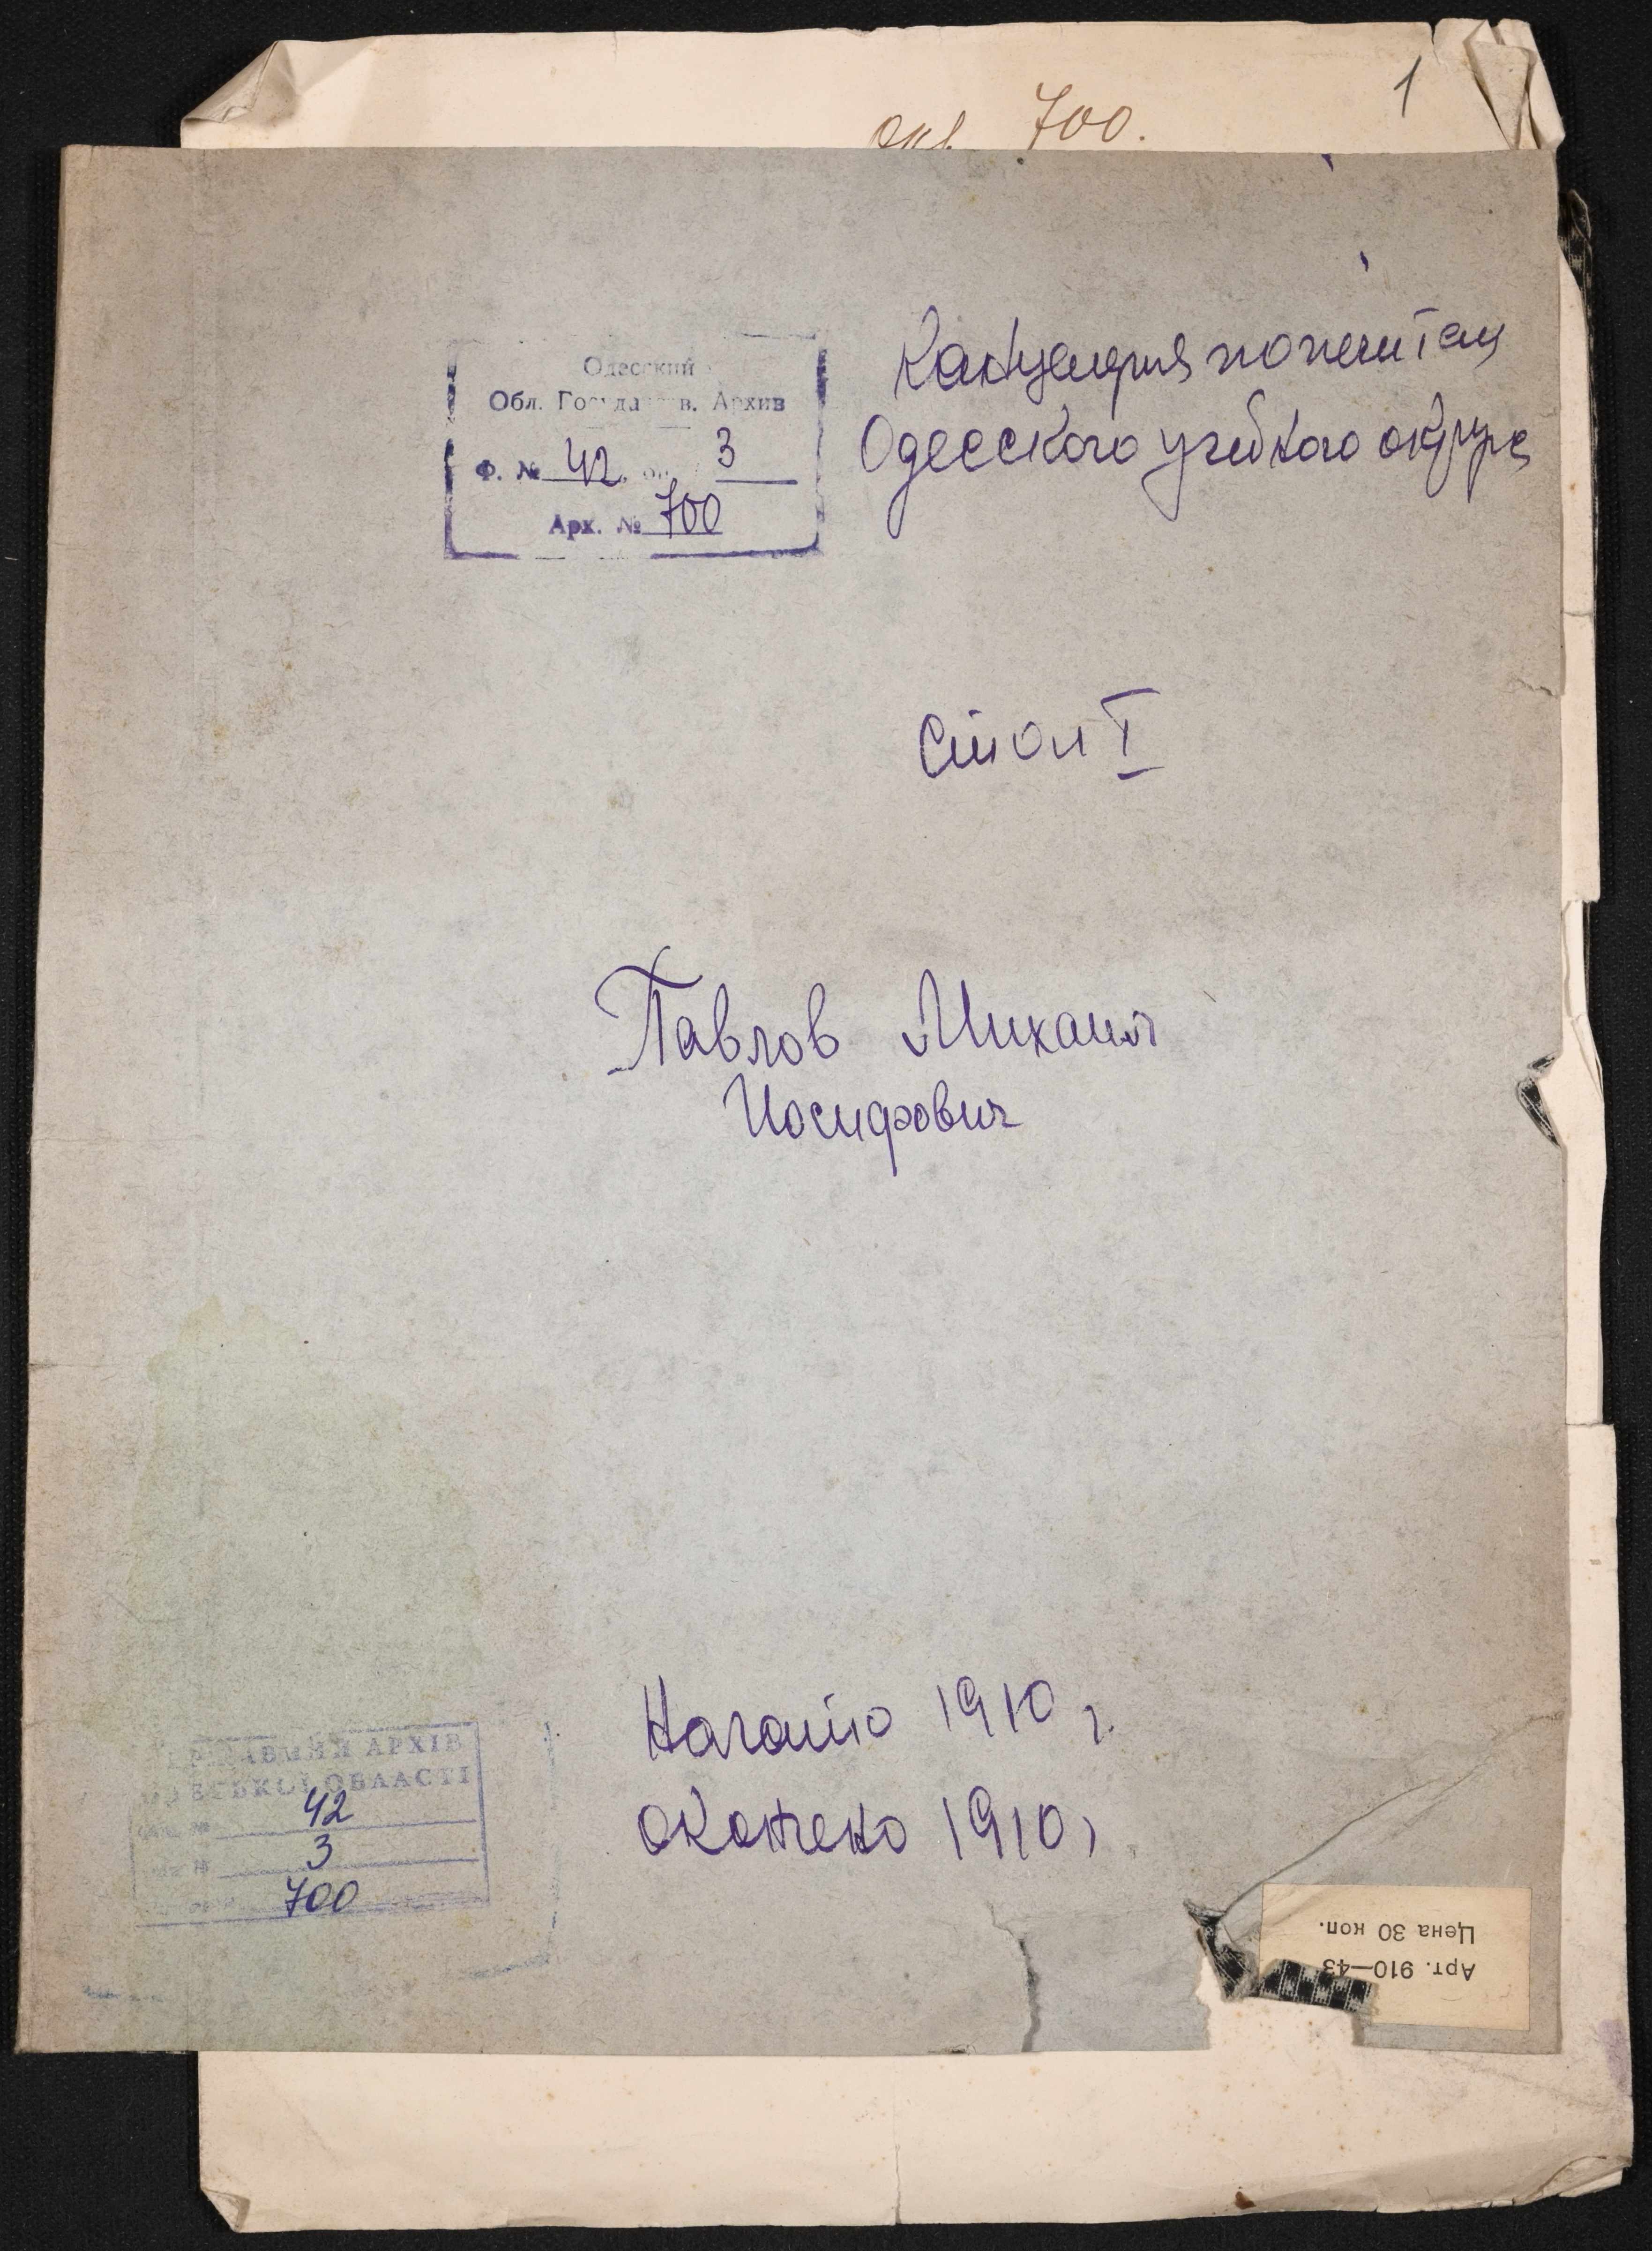 1
700.
Одесский
Обл. Государств. Архив
Ф. № 42 оп. 3
Арх. № 700
Канцелярия попечителя
Одесского учебного округа
Стол I
Павлов Михаил
Иосифович
Начато 1910 г.
Окончено 1910 г
ДЕРЖАВНИЙ АРХІВ
ОДЕСЬКОЇ ОБЛАСТІ
42
3
700
Арт. 910—43
Цена 30 коп.